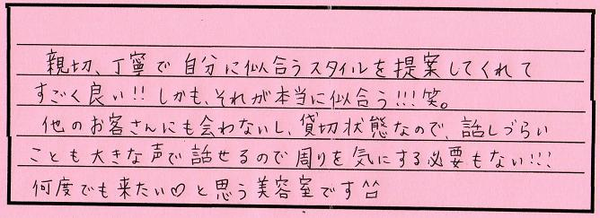 親切、丁寧で自分に似合うスタイルを提案してくれて
すごく良い!! しかも、それが本当に似合う!!!笑。
他のお客さんにも会わないし、貸切状態なので、話しづらい
ことも大きな声で話せるので周りを気にする必要もない!!!
何度でも来たい♡と思う美容室です^^